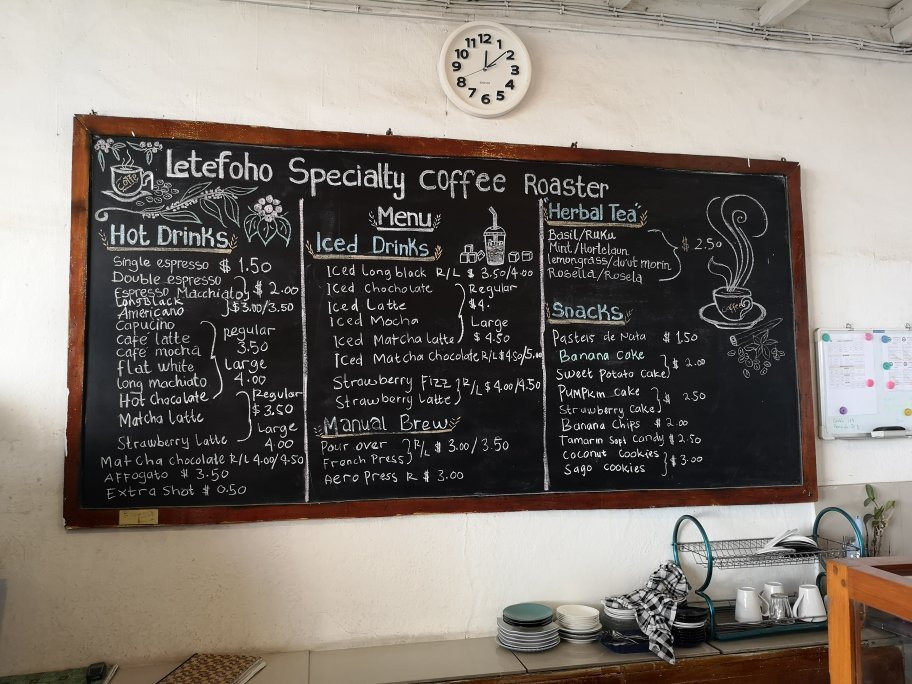 12
11 1
10 2
9 3
8 4
7 5
6
Letefoho Specialty Coffee Roaster
Coffe
Hot Drinks
Single espresso $ 1.50
Double espresso
Espresso Macchiato } $ 2.00
Longblack
Americano } $3.00/3.50
Capucino
Cafe latte
Cafe mocha
flat white
long machiato
Hot chocolate
regular
3.50
Large
4.00
Matcha latte
Strawberry Latte
Regular
$ 3.50
Large
4.00
Matcha chocolate R/L 4.00/4.50
Affogato $ 3.50
Extra shot $ 0.50
Menu
Iced Drinks
Iced Longblack R/L $ 3.50/4.00
Iced Chocholate
Iced Latte
Iced Mocha
Iced Matcha Latte
Regular
$4.
Large
$ 4.50
Iced Matcha Chocolate R/L $4.50/5.00
Strawberry Fizz
Strawberry Latte } R/L $ 4.00/4.50
Manual Brew
Pour over
Franch Press } R/L $ 3.00/3.50
Aero Press R $ 3.00
"Herbal Tea"
Basil/Ruku
Mint/Hortelaun
lemongrass/du'ut morin
Rosella/Rosela
$ 2.50
Coffee
Snacks
Pasteis de Nata $ 1.50
Banana cake
Sweet Potato Cake } $ 2.00
Pumpkin cake
Strawberry Cake } $ 2.50
Banana Chips $ 2.00
Tamarin Sopt Candy $ 2.50
Coconut Cookies
Sago cookies } $ 3.00